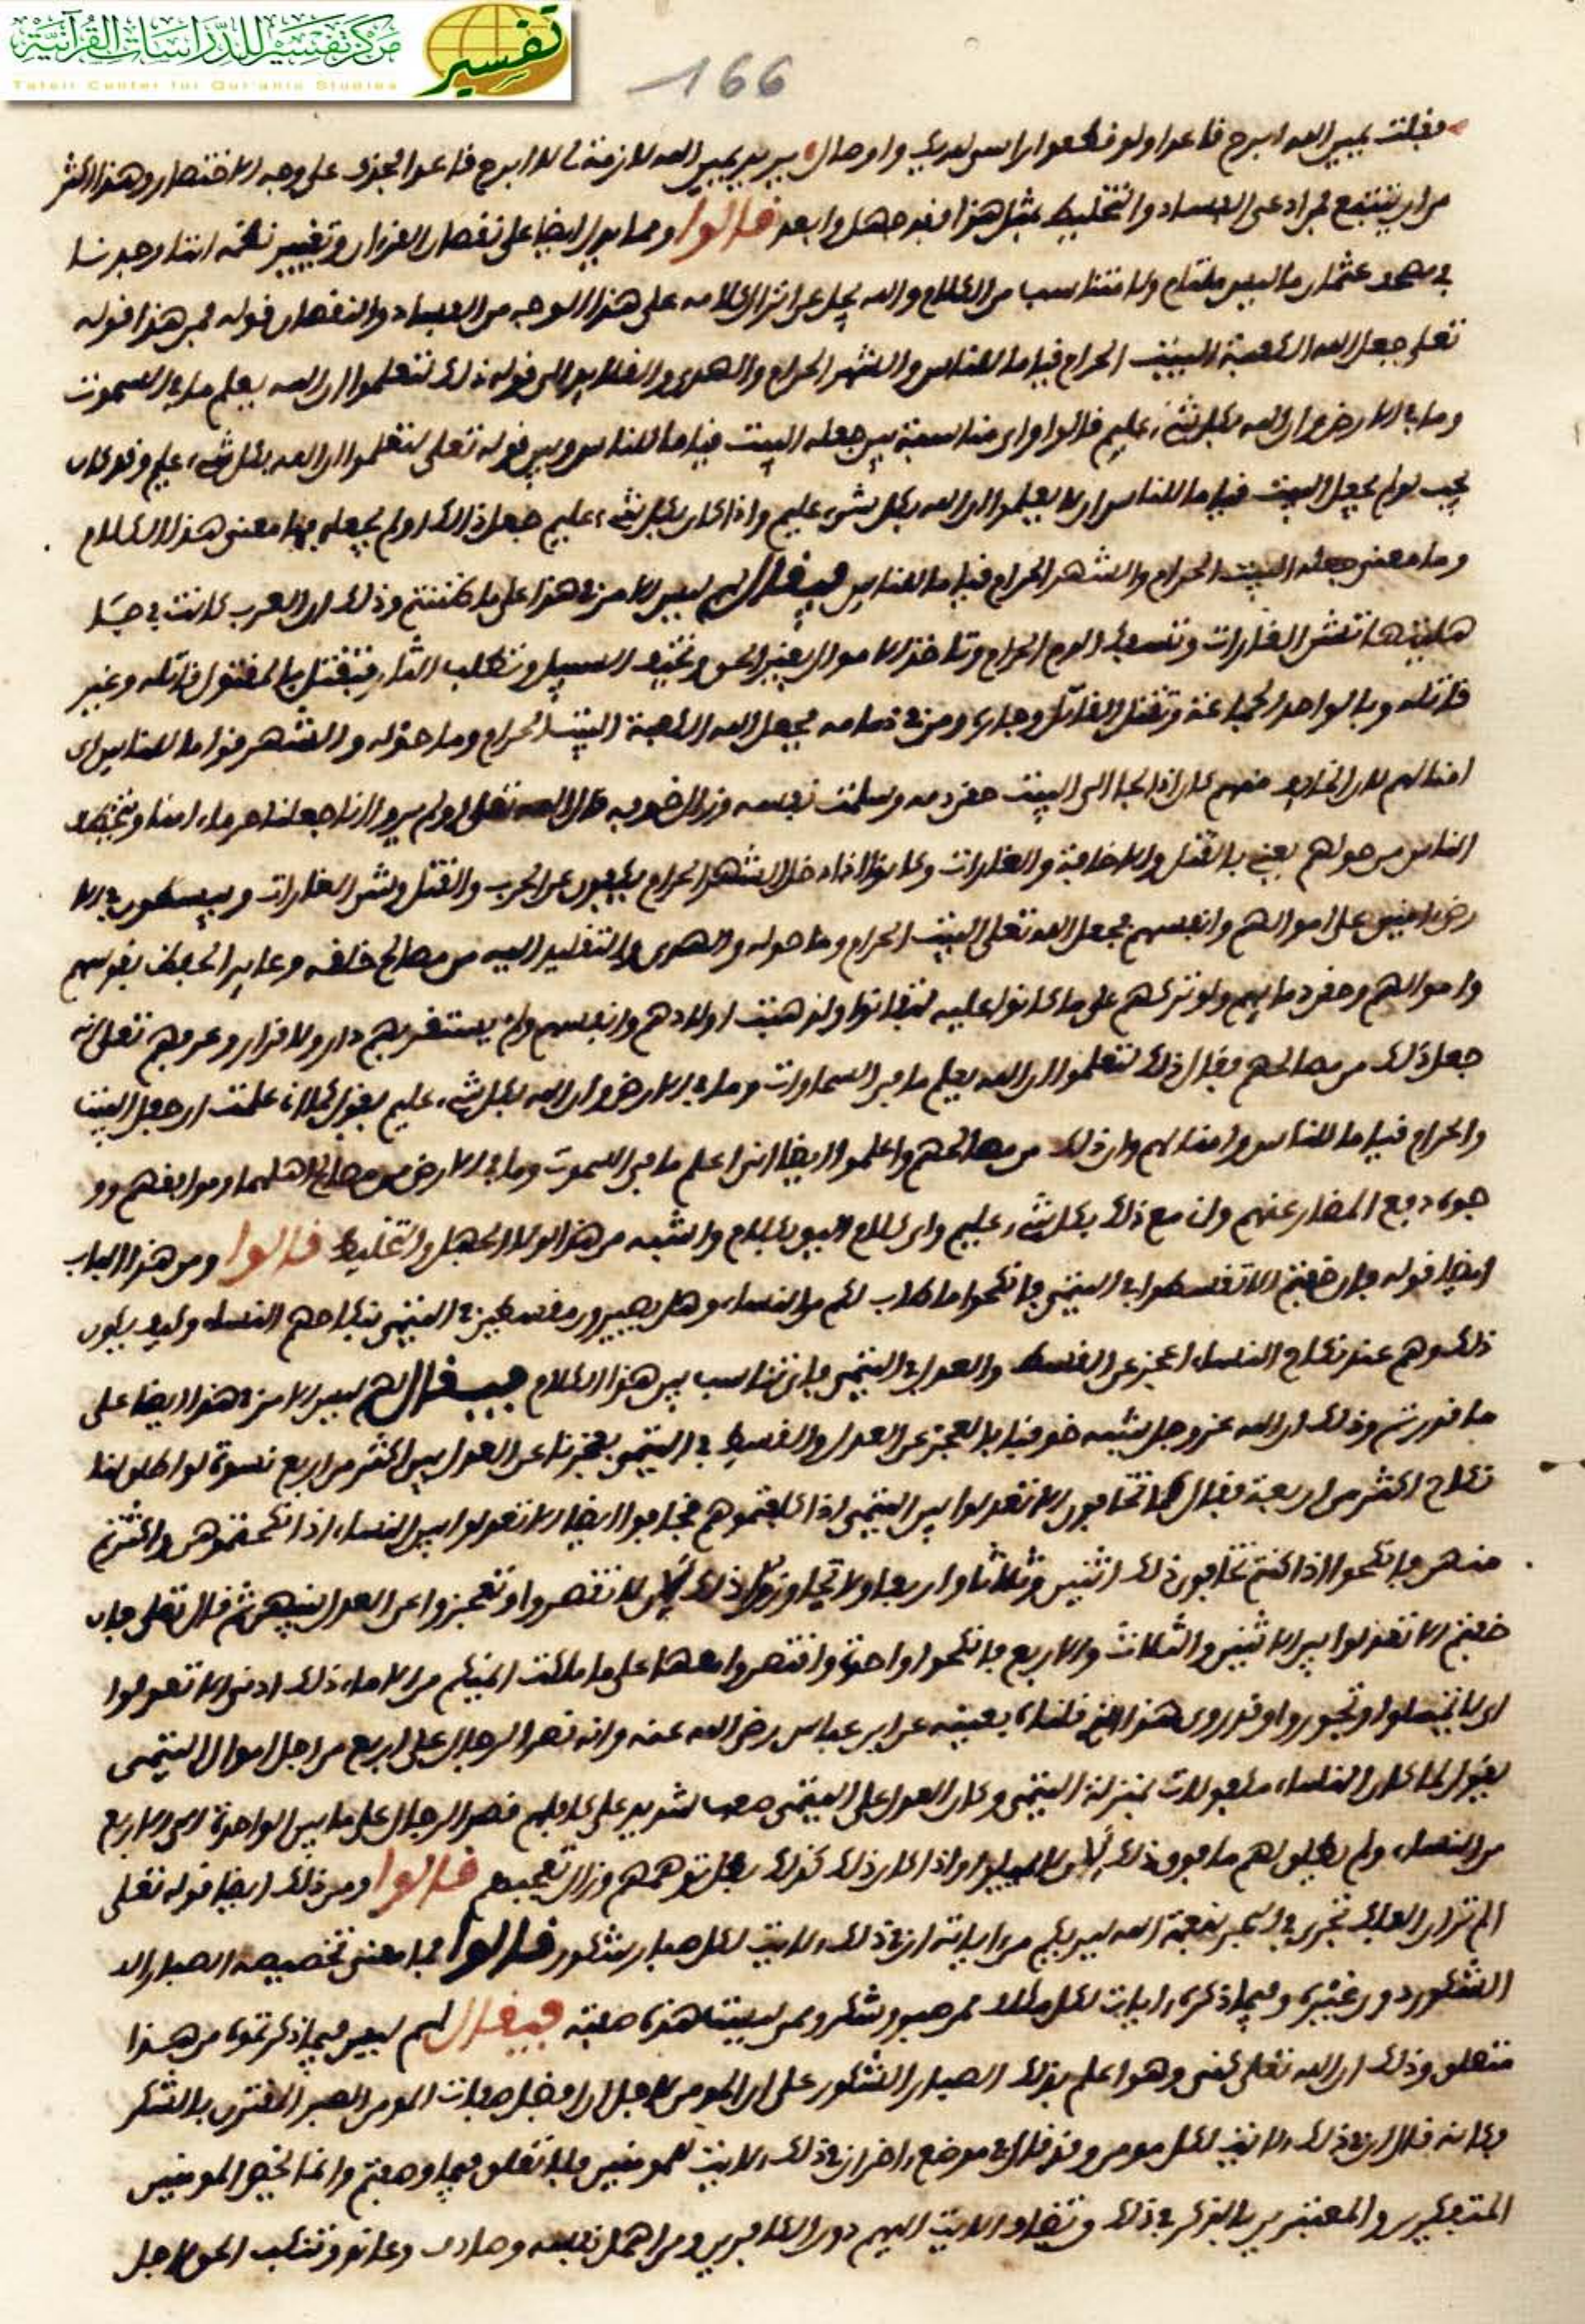 مركز تفسير للدراسات القرآنية
تفسير
Tafsir Center for Qur'anic Studies
166
فقلت يمين الله ابرح قاعدا ولو قطعوا راسي لديك واوصالي يريد يمين الله لازمة لا ابرح قاعدا فحذف على وجه الاختصار وهذا اكثر
من ان يتتبع فمن ادعى الفساد والتخليط بمثل هذا فقد جهل وابعد قالوا ومما يدل ايضا على نقصان القرءان وتغيير نظمه اننا وجدنا
في مصحف عثمان ما ليس ملتام ولا متناسب من الكلام والله يجل عن انزال كلامه على هذا الوجه من الفساد والنقصان قوله فمن هذا قوله
تعلى جعل الله الكعبة البيت الحرام قياما للناس والشهر الحرام والهدي والقلايد الى قوله ذلك لتعلموا ان الله يعلم ما في السموت
وما في الارض وان الله بكل شيء عليم قالوا واي مناسبة بين جعله البيت قياما للناس وبين قوله تعلى لتعلموا ان الله بكل شيء عليم وقد كان
يجب لو لم يجعل البيت قياما للناس ان لا يعلموا ان الله بكل شيء عليم واذا كان بكل شيء عليم جعل ذلك او لم يجعله فما معنى هذا الكلام
وما معنى جعله البيت الحرام والشهر الحرام قياما للناس فيقال لهم ليس الامر في هذا على ما ظننتم وذلك ان العرب كانت في جا
هليتها تشن الغارات وتسفك الدم الحرام وتاخذ الاموال بغير الحق وتخيف السبيل وتطلب الثار فتقتل بالمقتول قاتله وغير
قاتله وبالواحد الجماعة وتقتل القاتل وجاره ومن في ذمامه فجعل الله الكعبة البيت الحرام وما حوله والشهر قواما للناس اي
امنا لهم لان الخايف منهم كان اذا لجا الى البيت حقن دمه وسلمت نفسه وزال خوفه قال الله تعلى اولم يروا انا جعلنا حرما امنا ويتخطف
الناس من حولهم يعني بالقتل والاخافة والغارات وكانوا اذا دخل الشهر الحرام يكفون عن الحرب والقتل وشن الغارات وينبسطون في الا
رض امنين على اموالهم وانفسهم فجعل الله تعلى البيت الحرام وما حوله والهدي والتقليد اليه من مصالح خلقه وعايد الحفظ نفوسهم
واموالهم وحقن دمايهم ولو تركهم على ما كانوا عليه لتفانوا ولذهبت اولادهم وانفسهم ولم يستقر بهم دار ولا قرار وعرفهم تعلى انه
جعل ذلك من مصالحهم فقال ذلك لتعلموا ان الله يعلم ما في السماوات وما في الارض وان الله بكل شيء عليم يقول كما علمت ان جعل البيت
والحرام قياما للناس وامنا لهم وان ذلك من مصالحهم واعلموا ايضا انني اعلم ما في السموت وما في الارض من مصالح اهلهما ومرافقهم وو
جوه دفع المضار عنهم وان مع ذلك بكل شيء عليم واي كلام اليق بكلام واشبه من هذا لولا الجهل والتخليط قالوا ومن هذا الباب
ايضا قوله فان خفتم الا تقسطوا في اليتمى فانكحوا ما طاب لكم من النساء وهل يصيرون مقسطين في اليتمى بنكاحهم النساء وكيف يكون
ذلك وهم عند نكاح النساء اعجز عن القسط والعدل في اليتمى فاي تناسب بين هذا الكلام فيقال لهم ليس الامر في هذا ايضا على
ما قدرتم وذلك ان الله عز وجل شبه خوفنا بالعجز عن العدل والقسط في اليتمى بعجزنا عن العدل بين اكثر من اربع نسوة لو اطلق لنا
نكاح اكثر من اربعة فقال كما تخافون الا تعدلوا بين اليتمى اذا كفلتموهم فخافوا ايضا الا تعدلوا بين النساء اذا نكحتموهن واكثرتم
منهن فانكحوا اذا كنتم تخافون ذلك اثنين وثلاثا واربعا ولا تجاوزوا ذلك لان لا تقصروا وتعجزوا عن العدل بينهن ثم قال تعلى فان
خفتم الا تعدلوا بين الاثنين والثلاث والاربع فانكحوا واحدة واقتصروا معها على ما ملكت ايمنكم من الاماء ذلك ادنى الا تعولوا
اي لا تميلوا وتجوروا وقد روي هذا الذي قلناه بعينه عن ابن عباس رضي الله عنه وانه قصر الرجال على اربع من اجل اموال اليتمى
يقول لما كان النساء مكفولات بمنزلة اليتمى وكان العدل على اليتمى صعبا شديد على كافلهم قصر الرجال على ما بين الواحدة الى الاربع
من النساء ولم يطلق لهم ما فوق ذلك لان لا يميلوا واذا كان ذلك كذلك بطل توهمهم وزال تعجبهم قالوا ومن ذلك ايضا قوله تعلى
الم تر ان الفلك تجري في البحر بنعمة الله ليريكم من اياته ان في ذلك لايت لكل صبار شكور قالوا فما معنى تخصيصه الصبار
الشكور دون غيره وفيما ذكره ايات لكل مكلف ممن صبر وشكر وممن ليست هذه صفته فيقال لهم ليس فيما ذكرتموه من هذا
متعلق وذلك ان الله تعلى كنى وهو اعلم بذلك الصبار الشكور على ان المومن لاجل ان افضل صفات المومن الصبر المقترن بالشكر
وكانه قال ان في ذلك لايت لكل مومن وقد قال في موضع اخر ان في ذلك لايت للمومنين فلا تعلق فيما وصفتم وانما يخص المومنين
المتفكرين والمعتبرين بالذكر في ذلك وتضاف الايت اليهم دون الكافرين ومن اهمل نفسه وصادف وعاند وتنكب الحق لاجل